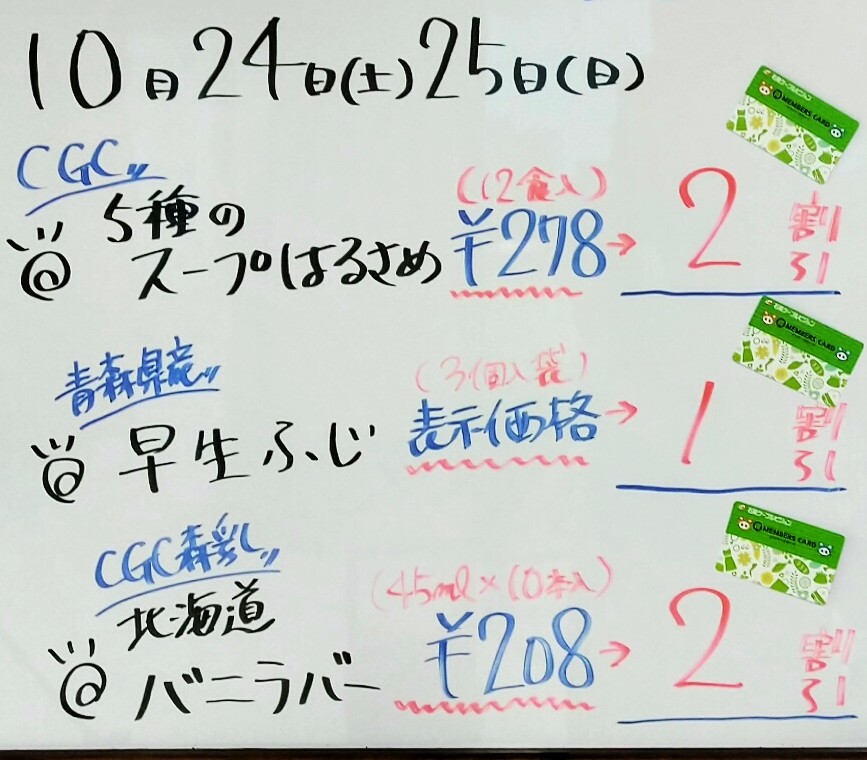 10月24日(土)25日(日)
CGC
5種の
スープはるさめ
(12食入)
¥278→2割引
MEMBERS CARD
青森県産
早生ふじ
(3個入袋)
表示価格→1割引
MEMBERS CARD
CGC森乳
北海道
バニラバー
(45ml×10本入)
¥208→2割引
MEMBERS CARD